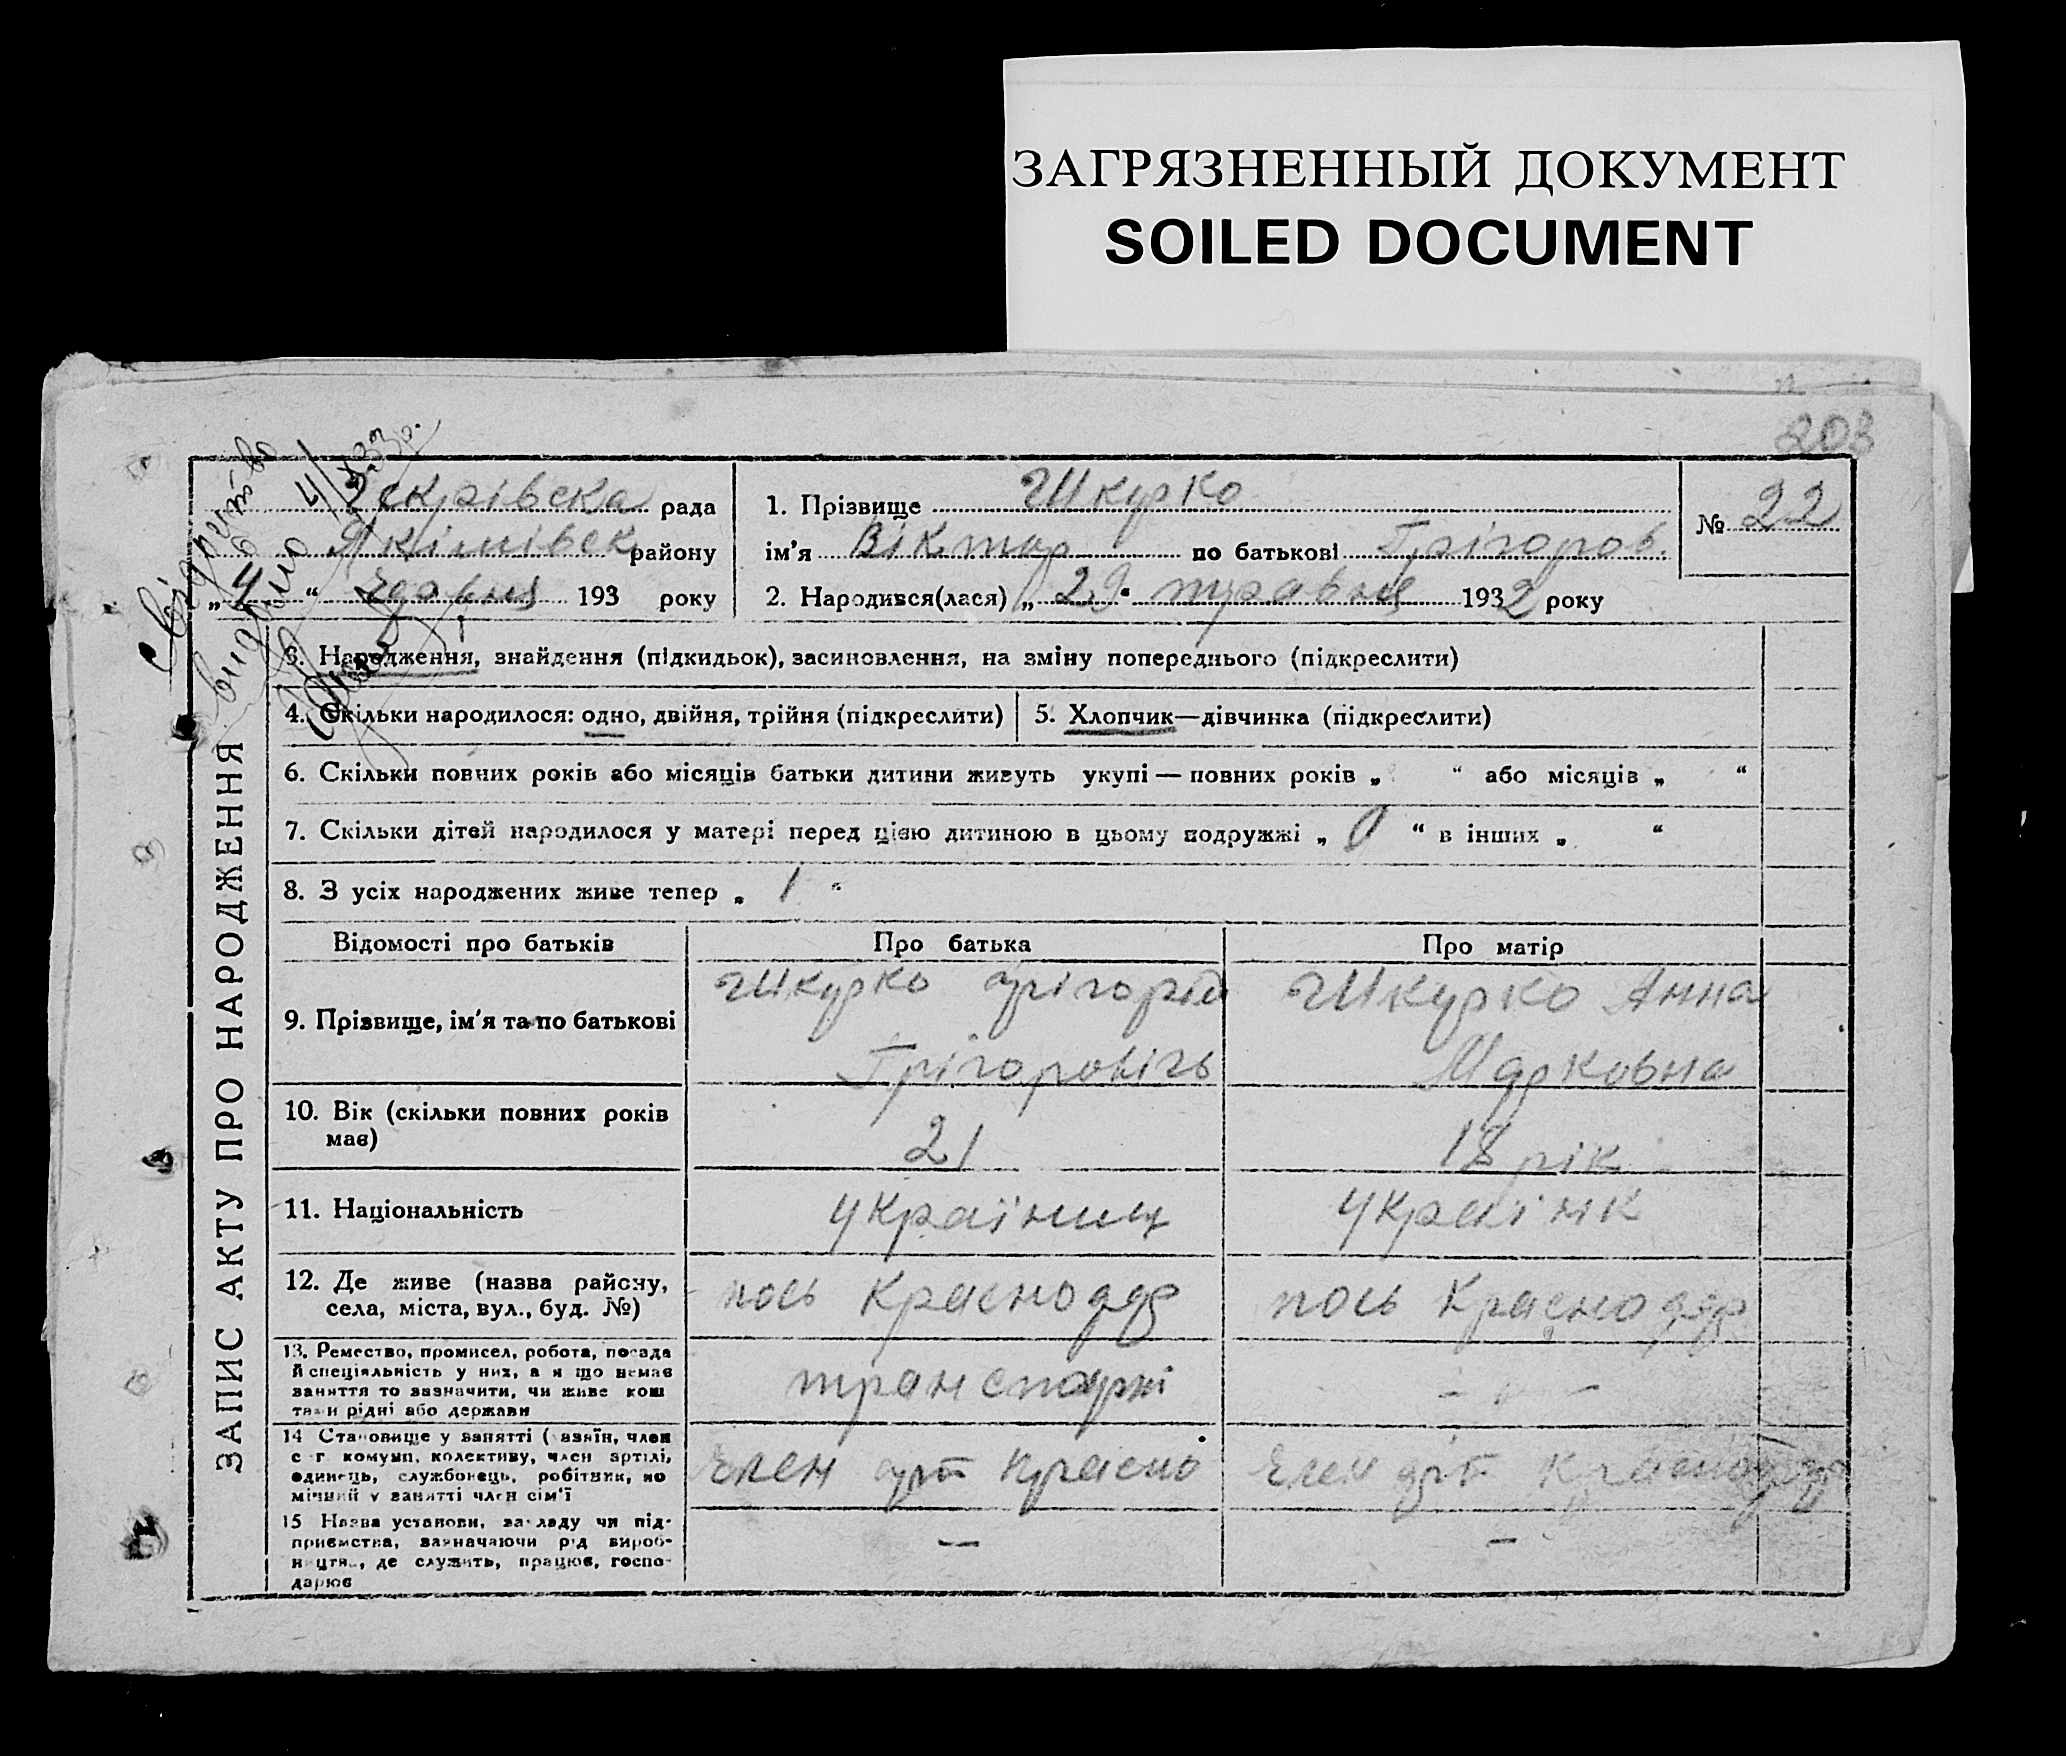 ЗАГРЯЗНЕННЫЙ ДОКУМЕНТ
SOILED DOCUMENT
203
Свідоцтво
видано 4/X 33р.
рада
Якімівськ району
„ 4 “ 193 року
1. Прізвище Шкурко
ім'я Віктор по батькові Грігоров.
2. Народився(лася) „ 29 “ травня 1932 року
№ 22
ЗАПИС АКТУ ПРО НАРОДЖЕННЯ
3. Народження, знайдення (підкидьок), засиновлення, на зміну попереднього (підкреслити)
4. Скільки народилося: одно, двійня, трійня (підкреслити)
5. Хлопчик—дівчинка (підкреслити)
6. Скільки повних років або місяців батьки дитини живуть укупі — повних років „ “ або місяців „ “
7. Скільки дітей народилося у матері перед цією дитиною в цьому подружжі „ 0 “ в інших „ “
8. З усіх народжених живе тепер „ 1 “
Відомості про батьків
Про батька
Про матір
9. Прізвище, ім'я та по батькові
Шкурко Грігорій
Грігоровічь
Шкурко Анна
Марковна
10. Вік (скільки повних років
має)
21
18 рік
11. Національність
Україниц
Українк
12. Де живе (назва району,
села, міста, вул., буд. №)
пось Краснодар
пось Краснодар
13. Ремество, промисел, робота, посада
й спеціяльність у них, а я що немає
заняття то зазначити, чи живе кош
тами рідні або держави
транспорті
— —
14 Становище у занятті (хазяїн, член
с-г комуни, колективу, член артілі,
одинець, службовець, робітник, по
мічний у занятті член сім'ї
Член арт Красно
Член арт Краснодар
15 Назва установи, закладу чи під-
приємства, зазначаючи рід вироб-
ництва, де служить, працює, госпо-
дарює
—
—